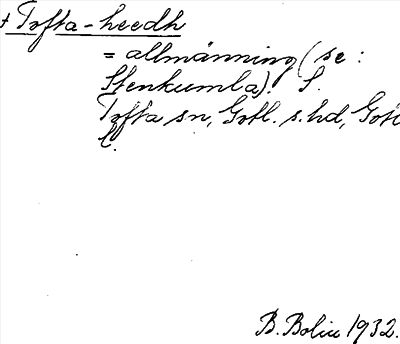 + Tofta-heedh
= allmänning (se:
Stenkumla). S.
Tofta sn, Gotl. s. hd, Gotl.
l.
B. Bolin 1932.